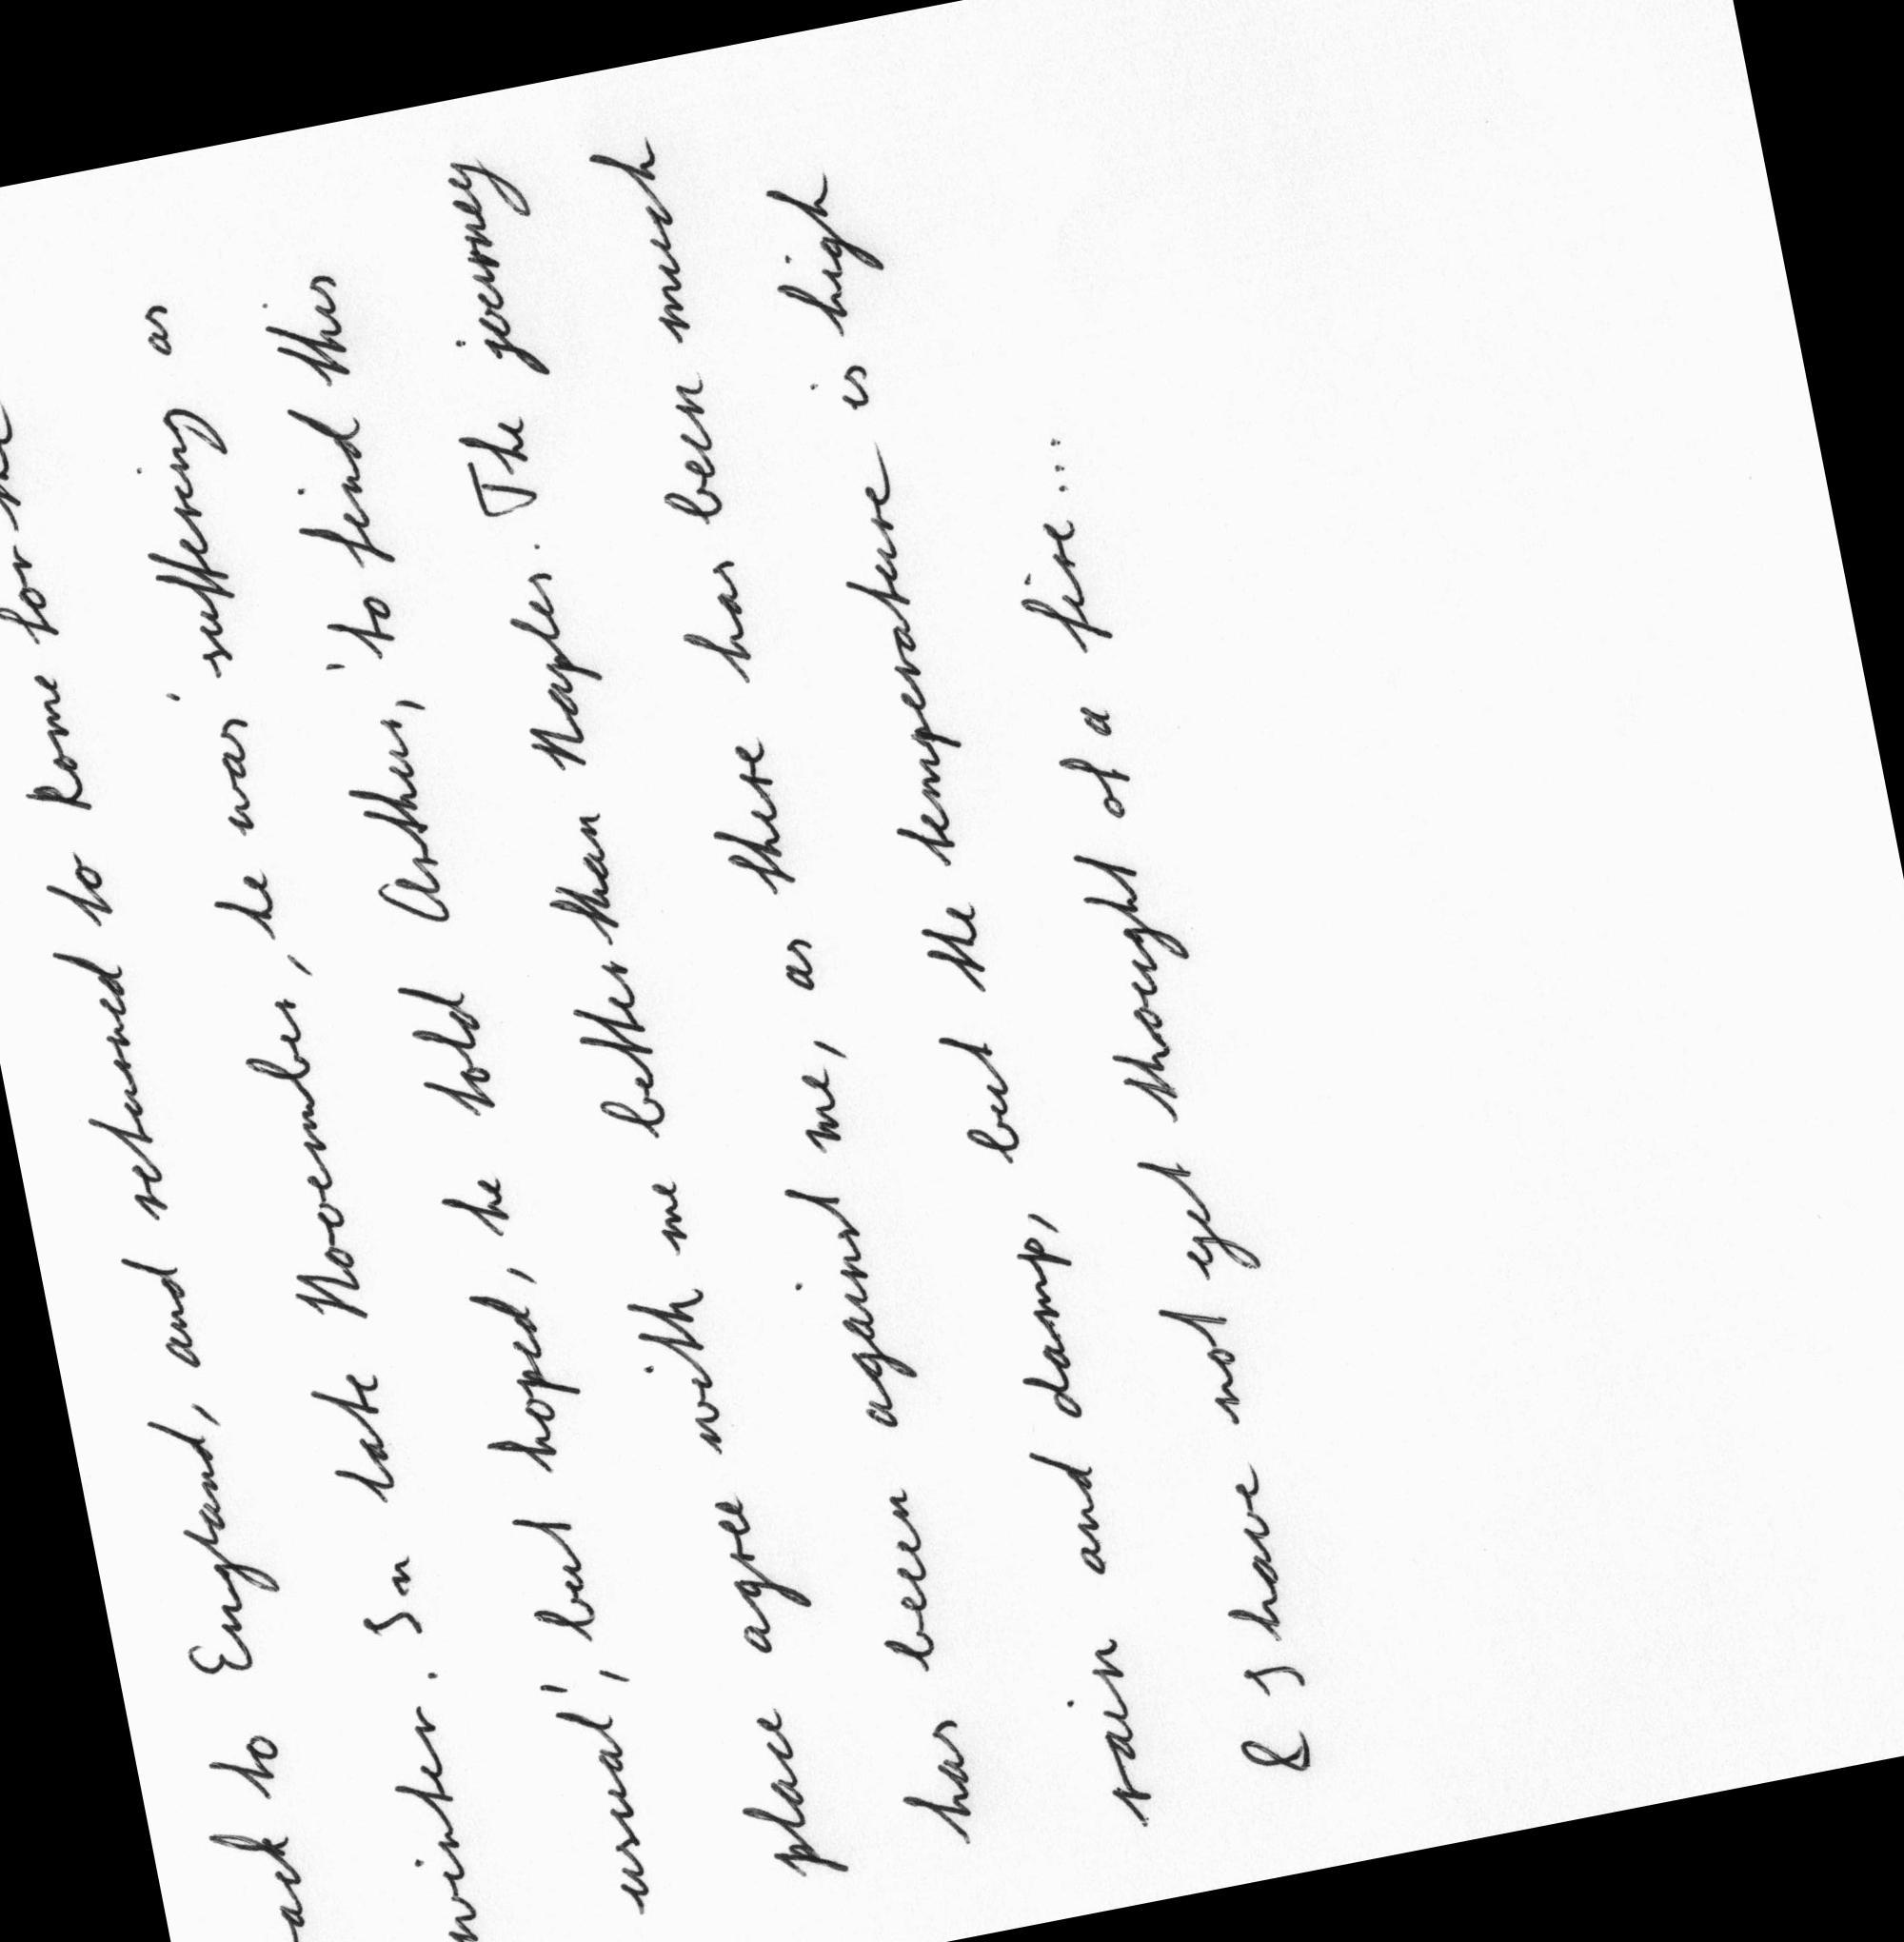 ack to England, and returned to Rome for the
winter. In late November, he was 'suffering as
usual', but hoped, he told Arthur, 'to find this
place agree with me better than Naples. The journey
has been against me, as there has been much
rain and damp, but the temperature is high
& I have not yet thought of a fire...